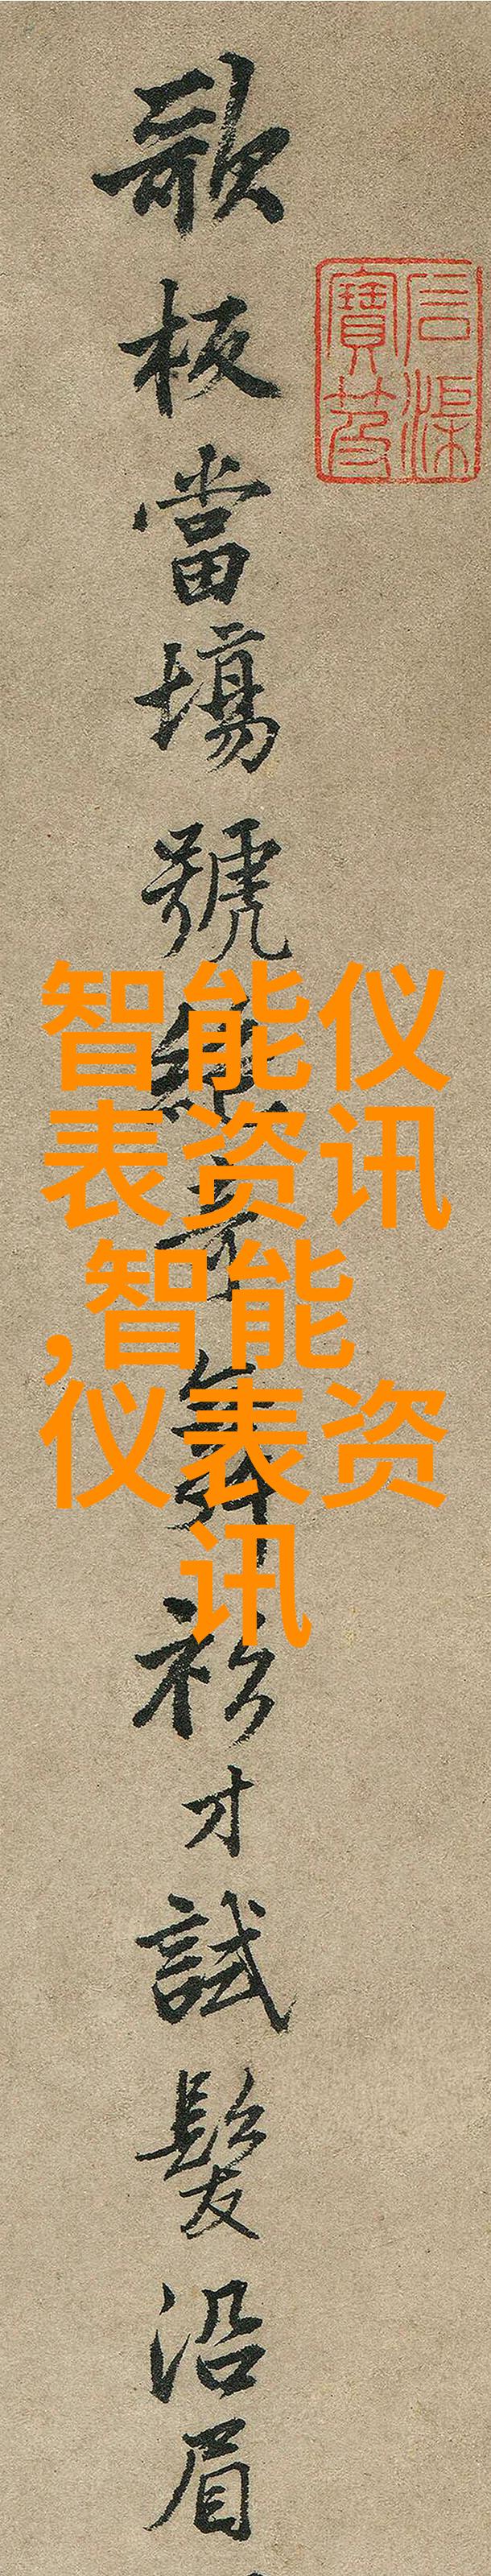 石渠
寶笈
歌板當場號絕奇舞衫才試髮沿眉
智能仪
表资讯
,智能
仪表资
讯